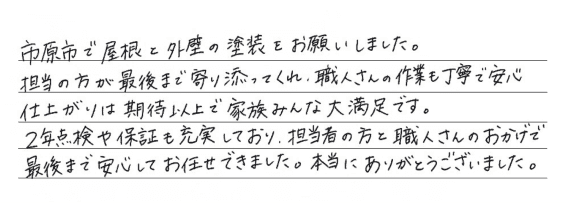 市原市で屋根と外壁の塗装をお願いしました。
担当の方が最後まで寄り添ってくれ、職人さんの作業も丁寧で安心
仕上がりは期待以上で家族みんな大満足です。
2年点検や保証も充実しており、担当者の方と職人さんのおかげで
最後まで安心してお任せできました。本当にありがとうございました。